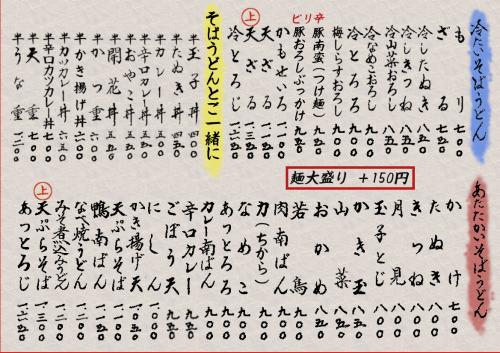 冷たいそばうどん
もり 七〇〇
ざる 八〇〇
冷したぬき 八五〇
冷しきつね 八五〇
冷山菜おろし 九〇〇
冷なめこおろし 九〇〇
冷とろろ 九〇〇
梅しらすおろし 九〇〇
ピリ辛
豚南蛮(つけ麺) 九五〇
豚おろしぶっかけ 九五〇
かもせいろ 一一〇〇
上
天ざる
天ざる
冷とろじ
そばうどんとご一緒に
半玉子丼 四五〇
半たぬき丼 四五〇
半カレー丼 五五〇
半辛口カレー丼 五五〇
半おやこ丼 五五〇
半開花丼 五五〇
半かつ重 六〇〇
半かき揚げ丼 六〇〇
半カツカレー丼 六五〇
半辛口カツカレー丼 七〇〇
半天重 七〇〇
半うな重
麺大盛り +150円
あたたかいそばうどん
かけ 七〇〇
たぬき 八〇〇
きつね 八〇〇
月見 八〇〇
玉子とじ 八〇〇
かき玉 八〇〇
山菜 八五〇
おかめ 八五〇
若鳥 九〇〇
肉南ばん 九〇〇
力(ちから) 九〇〇
なめこ 九〇〇
あっとろろ 九〇〇
カレー南ばん 九五〇
辛口カレー 九五〇
ごぼう天 九五〇
にしん
かき揚げ天
天ぷらそば
鴨南ばん
なべ焼うどん
みそ煮込みうどん
上
天ぷらそば
あっとろじ